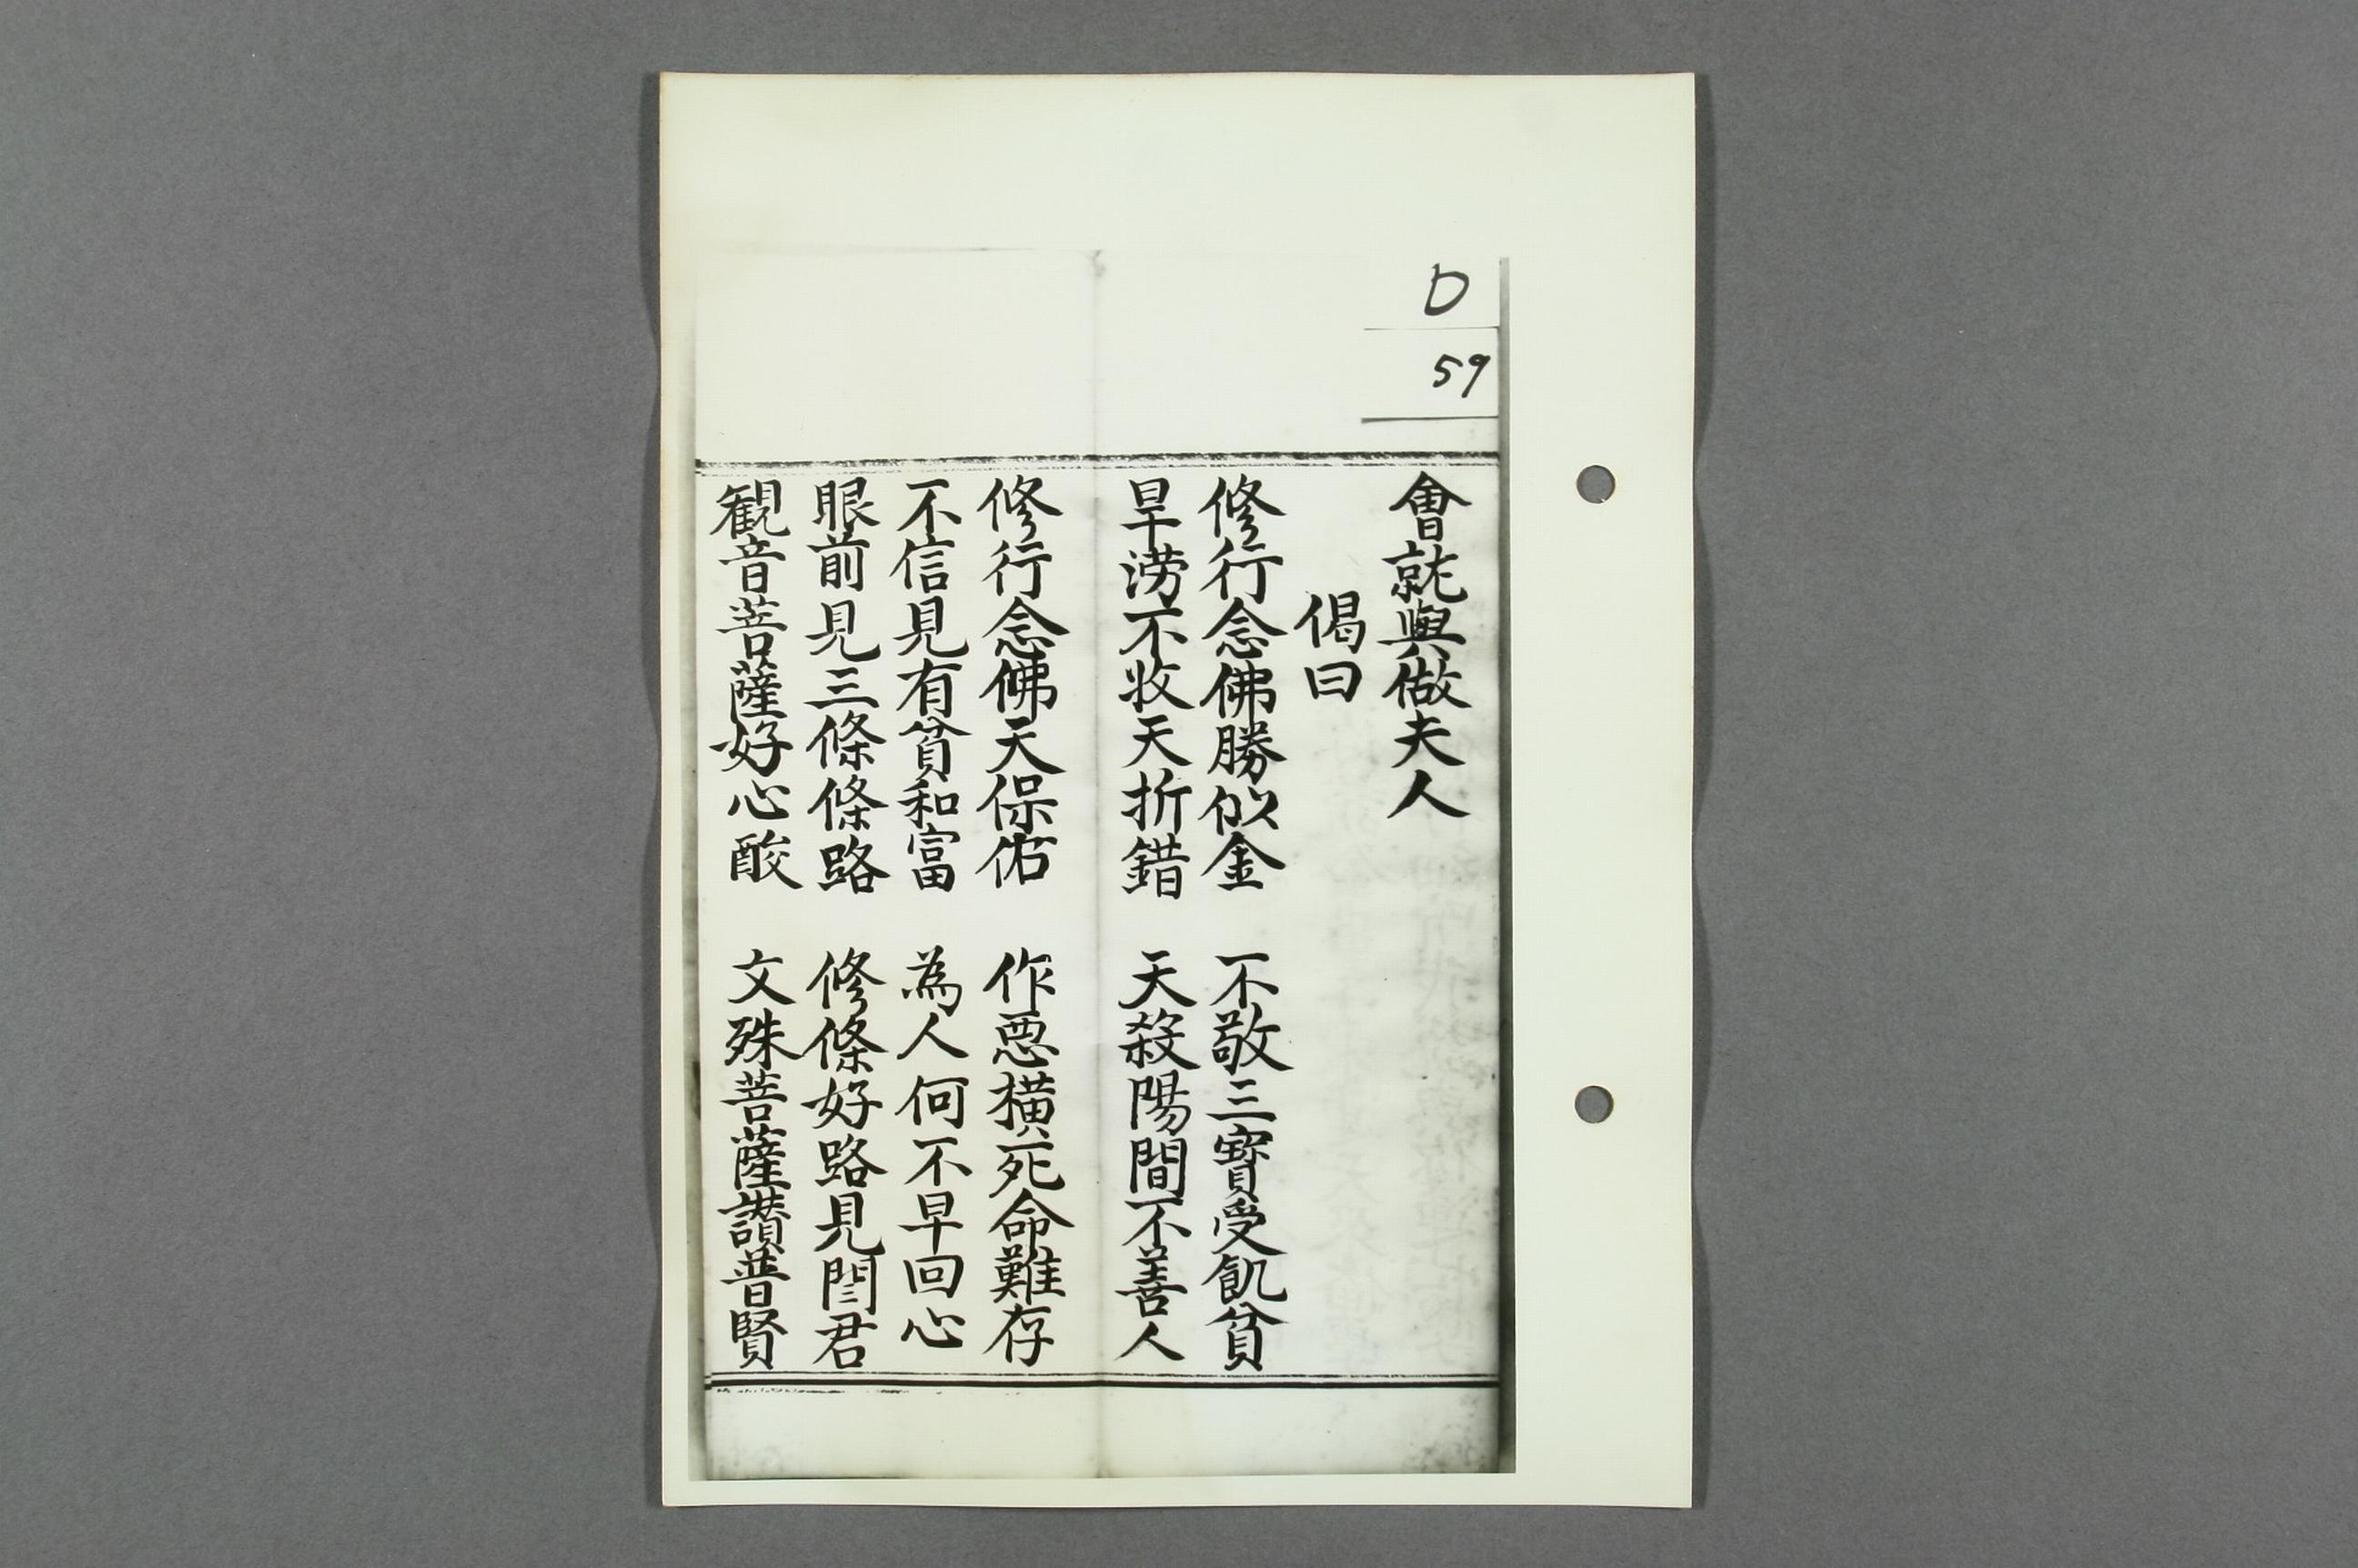 D
59
會就與做夫人
偈曰
修行念佛勝似金　不敬三寳受飢貧
旱涝不收天折錯　天殺陽間不善人
修行念佛天保佑　作惡橫死命難存
不信見有貧和富　為人何不早回心
眼前見三條條路　修條好路見閆君
観音菩薩好心酸　文殊菩薩讃普賢